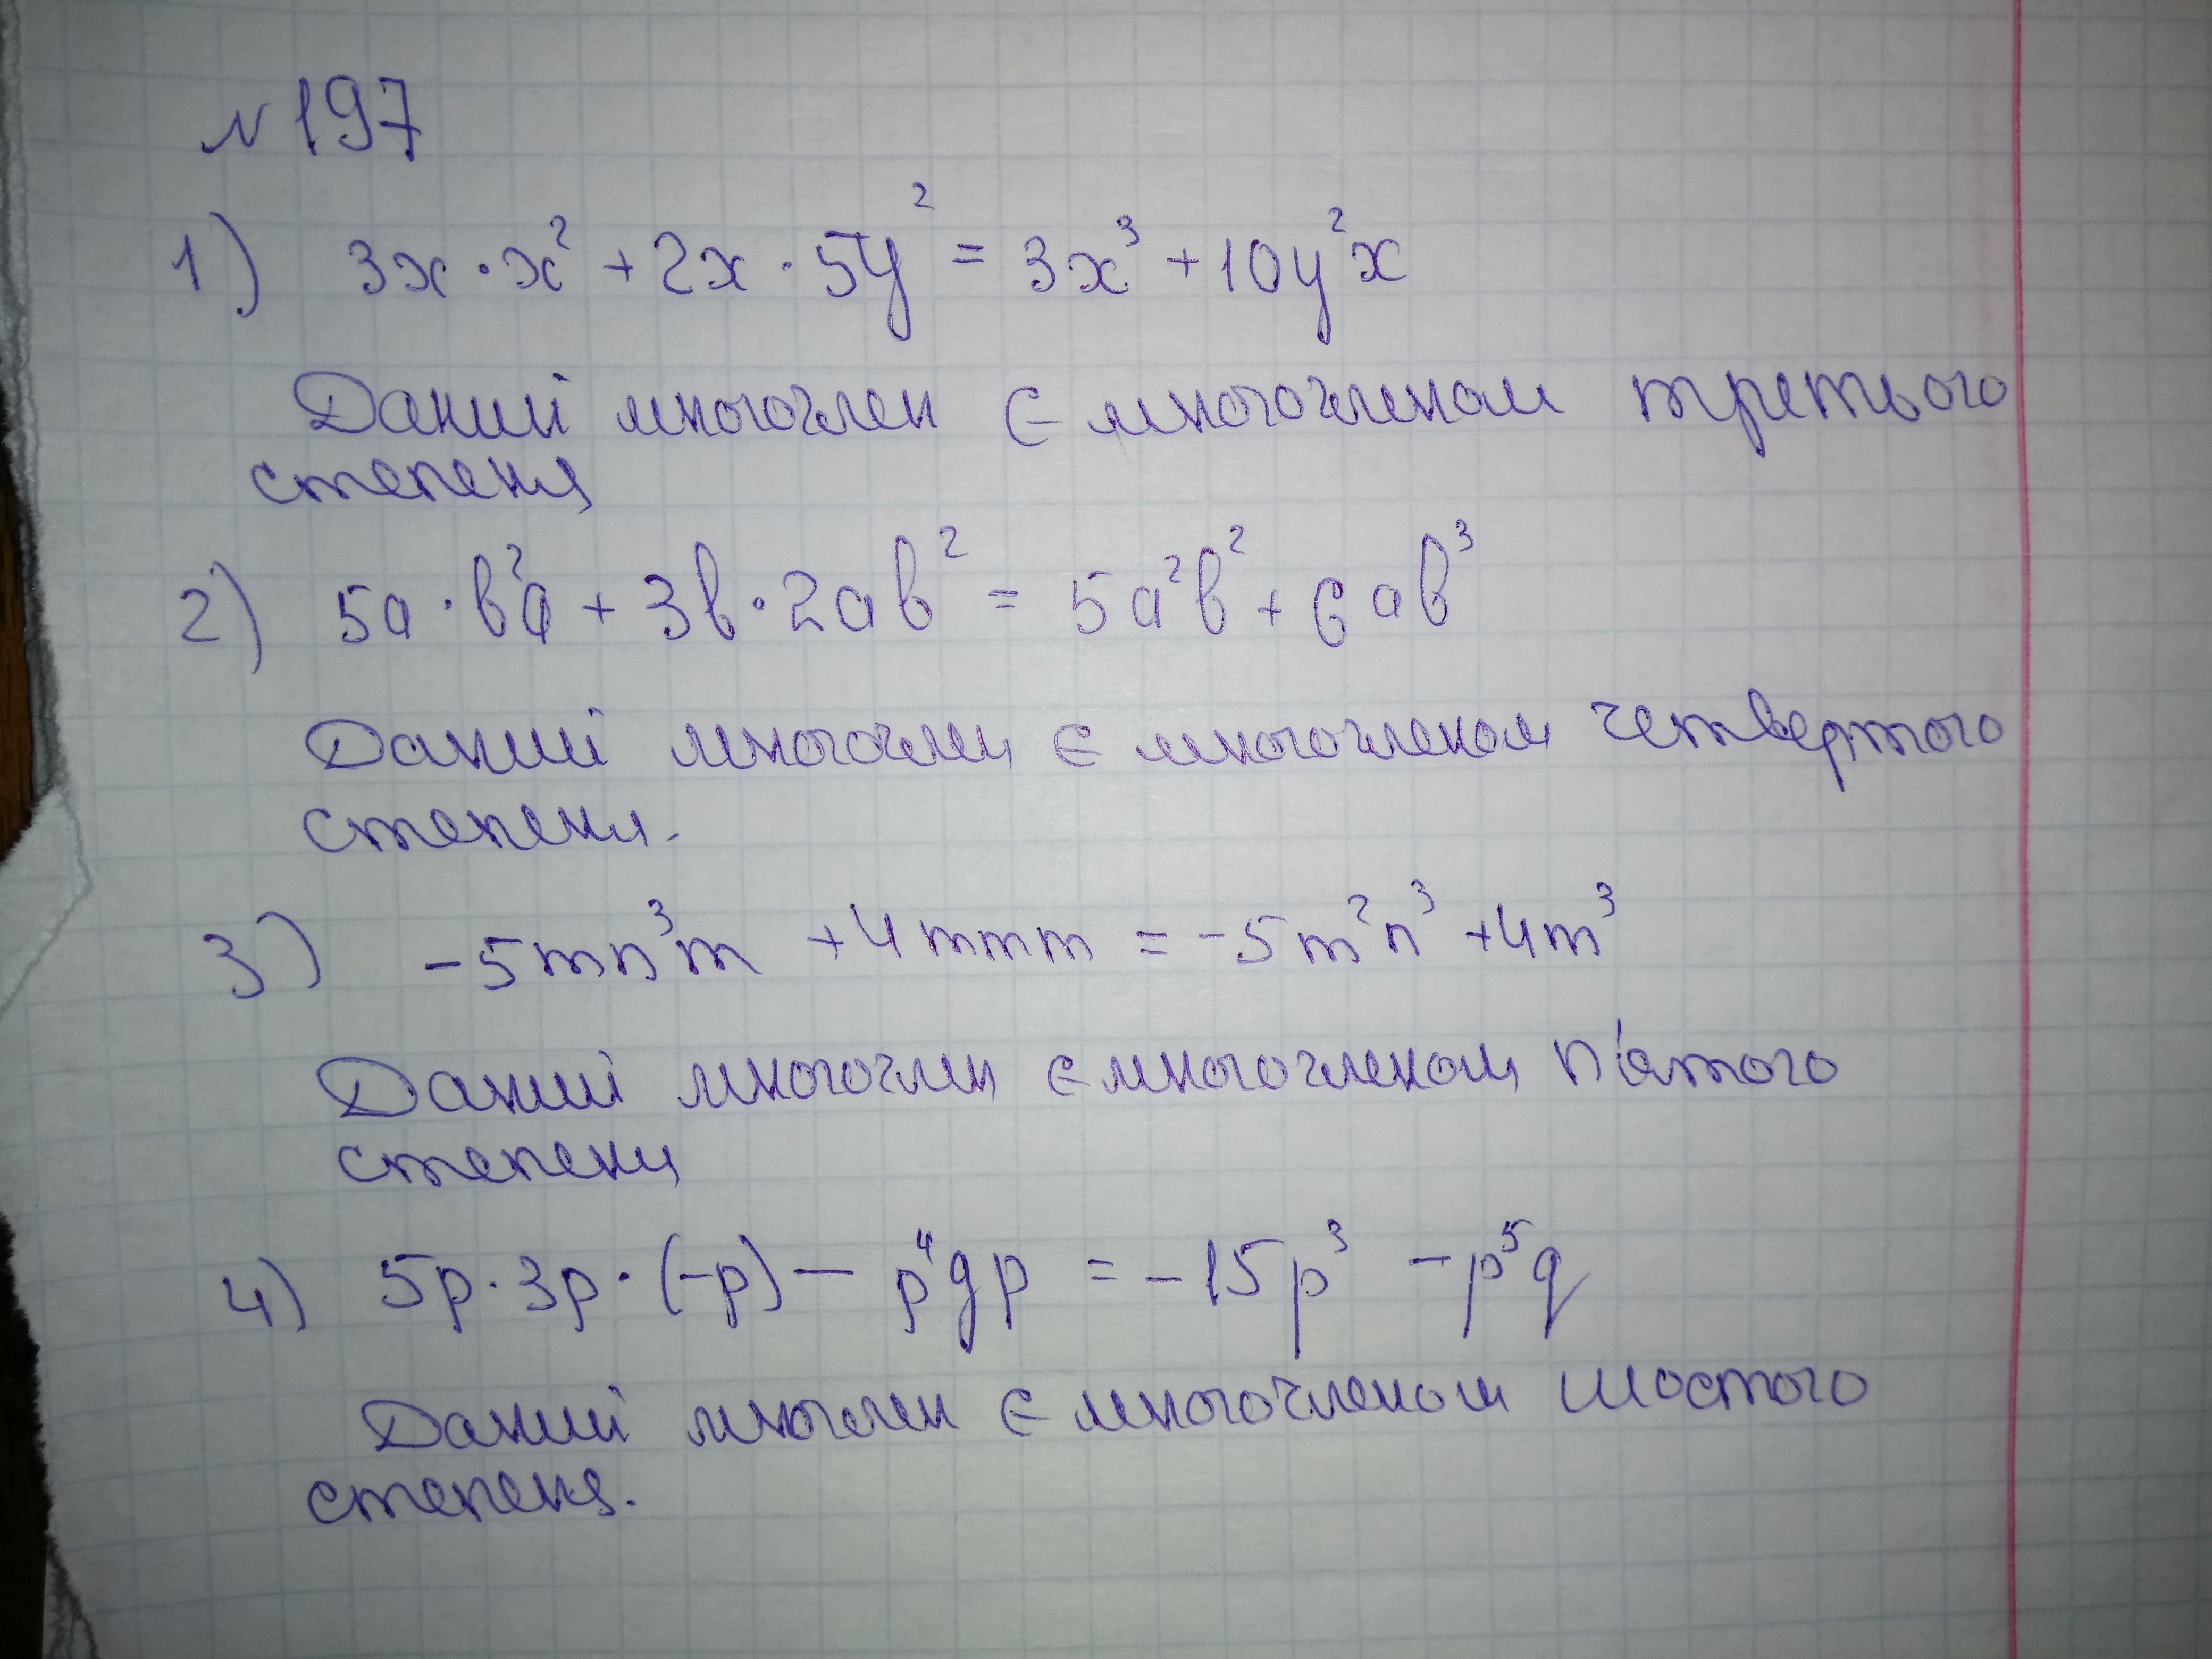 №197
1) 3x·x²+2x·5y²=3x³+10y²x
Даний многочлен є многочленом третього
степеня
2) 5a·b²a+3b·2ab²=5a²b²+6ab³
Даний многочлен є многочленом четвертого
степеня.
3) -5mn³m+4mmm=-5m²n³+4m³
Даний многочлен є многочленом п'ятого
степеня
4) 5p·3p·(-p)-p⁴qp=-15p³-p⁵q
Даний многочлен є многочленом шостого
степеня.